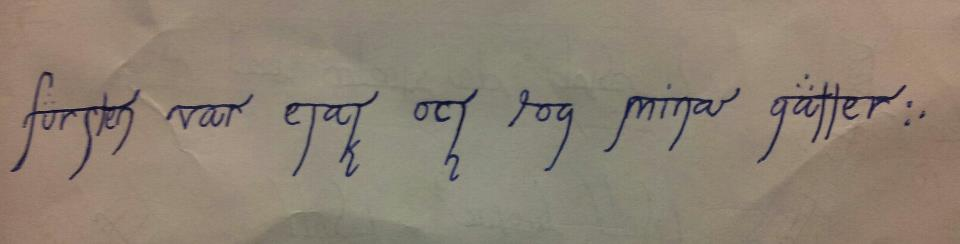 fürsten var elak och tog mina gäller:.